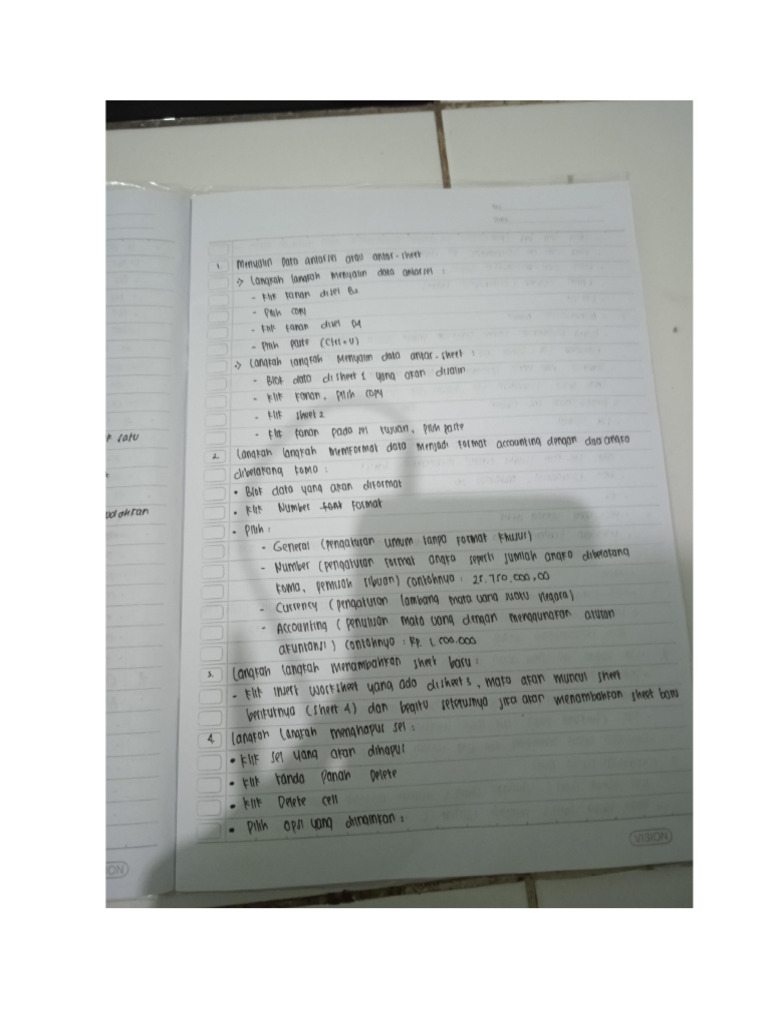 No
Date
1. Menyalin Data antarsel atau antar-sheet
-> Langkah langkah menyalin data antarsel :
- Klik kanan disel B2
- Pilih copy
- Klik kanan disel D4
- Pilih paste (Ctrl+V)
-> Langkah langkah Menyalin data antar-sheet :
- Blok data di sheet 1 yang akan disalin
- Klik kanan, pilih copy
- Klik sheet 2
- Klik kanan pada sel tujuan, pilih paste
2. Langkah langkah memformat data menjadi format accounting dengan dua angka
dibelakang koma :
• Blok data yang akan diformat
• Klik Number font Format
• Pilih :
- General (pengaturan umum tanpa format khusus)
- Number (pengaturan format angka seperti jumlah angka dibelakang
koma, pemisah ribuan) contohnya : 25.750.000,00
- Currency (pengaturan lambang mata uang suatu negara)
- Accounting (penulisan mata uang dengan menggunakan aturan
akuntansi) contohnya : Rp 1.500.000
3. Langkah langkah menambahkan sheet baru :
- Klik insert worksheet yang ada disheet 3, maka akan muncul sheet
berikutnya (sheet 4) dan begitu seterusnya jika akan menambahkan sheet baru
4. Langkah langkah menghapus sel :
• Klik sel yang akan dihapus
• Klik tanda Panah Delete
• Klik Delete cell
• Pilih opsi yang diinginkan :
VISION
satu
ON